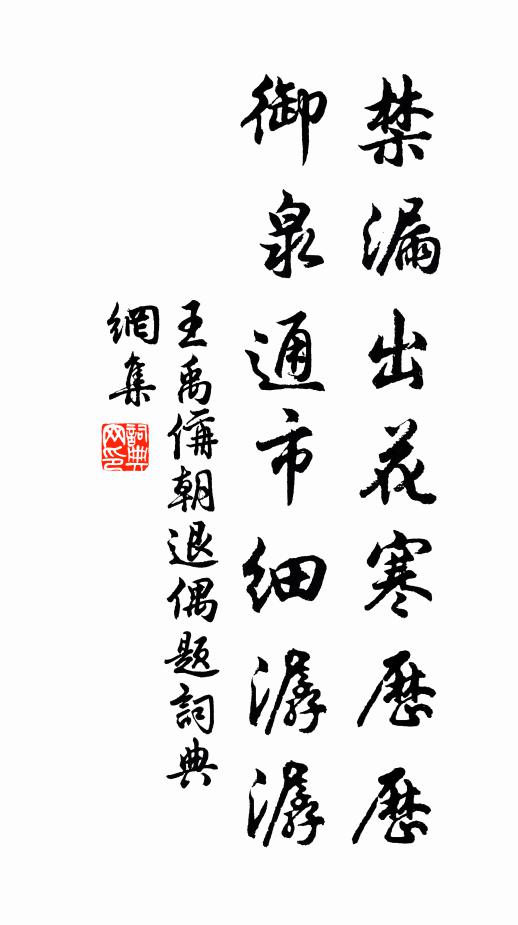 禁漏出花寒歷歷
御泉通市細潺潺
王禹偁朝退偶題詞典
網集
詞典
网印